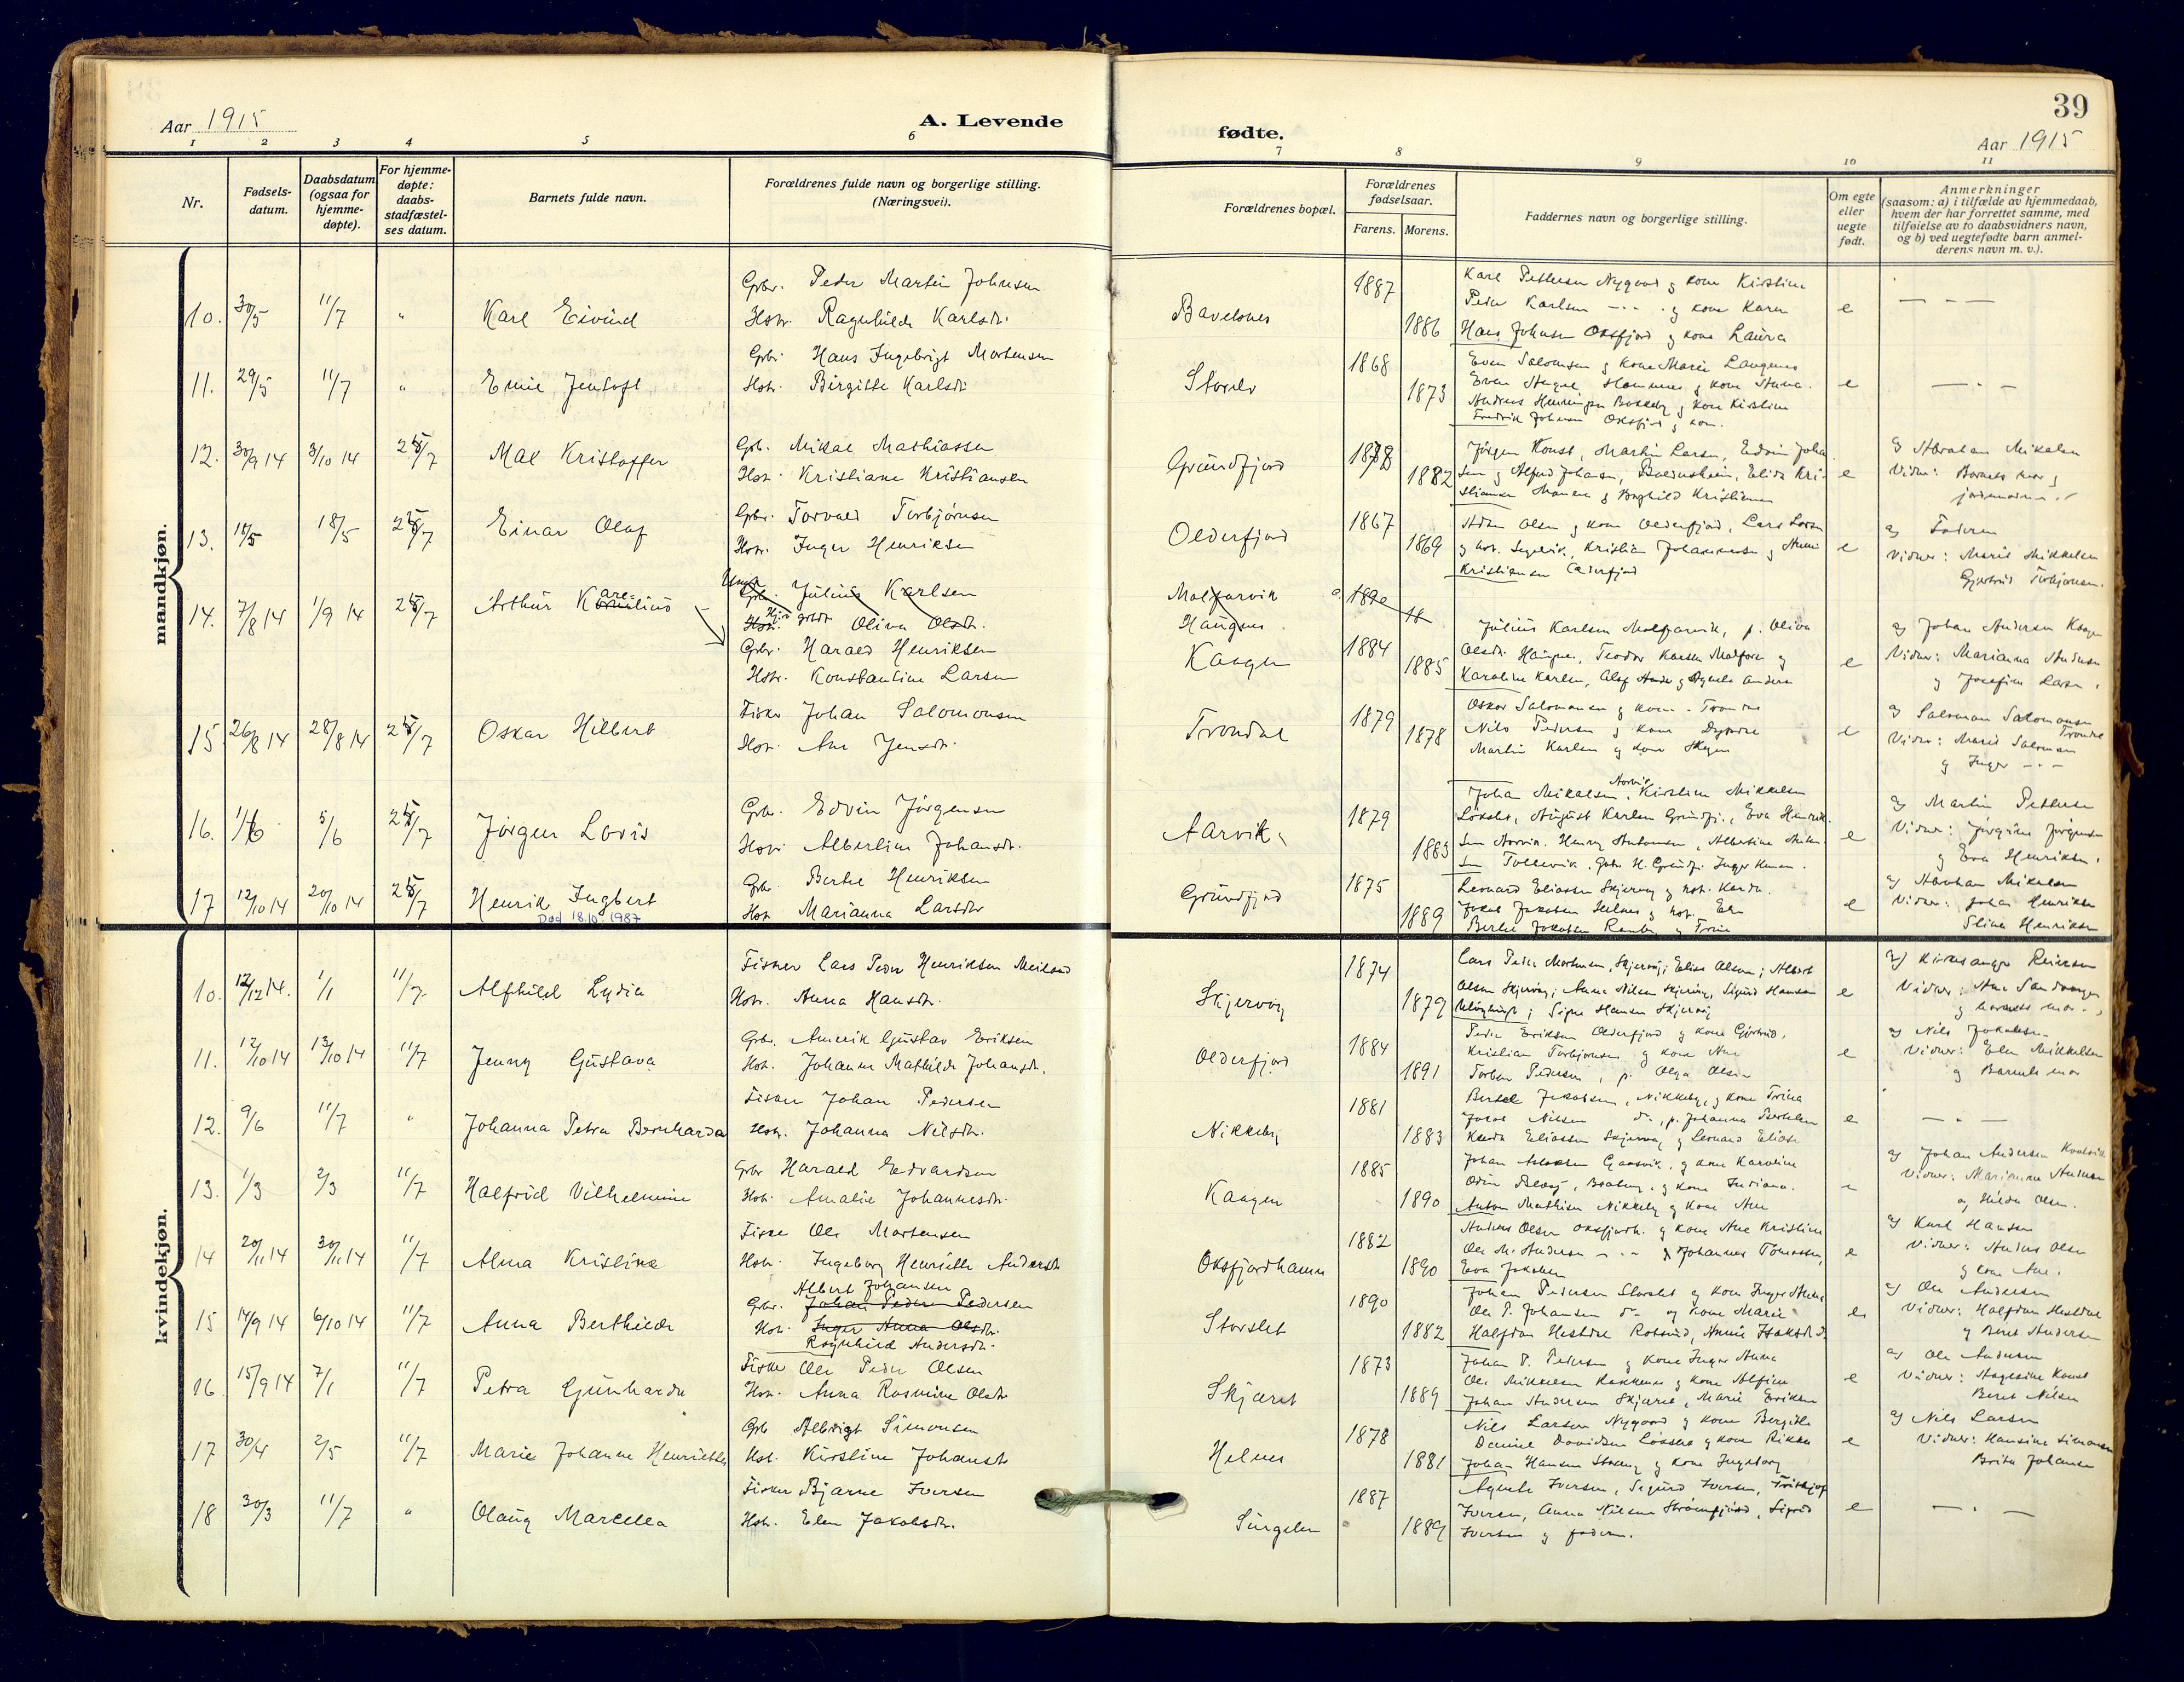 Aar 1915
A. Levende
fødte.
39
Aar 1915
1 2 3 4 5 6 7 8 9 10 11
Nr.
Fødselsdatum.
Daabsdatum (ogsaa for hjemmedøpte).
For hjemmedøpte: daabsstadfæstelses datum.
Barnets fulde navn.
Forældrenes fulde navn og borgerlige stilling. (Næringsvei).
Forældrenes bopæl.
Forældrenes fødselsaar.
Farens. Morens.
Faddernes navn og borgerlige stilling.
Om egte eller uegte født.
Anmerkninger (saasom: a) i tilfælde av hjemmedaab, hvem der har forrettet samme, med tilføielse av to daabsvidners navn, og b) ved uegtefødte barn anmelderens navn m. v.).
mandkjøn.
10. 30/5 11/7 " Karl Eivind
Gbr. Peder Martin Johnsen
Hstr. Ragnhilda Karlsdr.
Bavelsnes 1887 1886
Karl Pettersen Nygaard g kone Kirstine
Peder Karlsen -"- g kone Karen
Hans Johnsen Oksfjord g kone Laura
e
11. 29/5 11/7 " Emil Jentoft
Gbr. Hans Ingebrigt Mortensen
Hstr. Birgitte Karlsdr.
Storslet 1868 1873
Even Salomonsen g kone Marie Langenes
g kone Anna.
g kone Kirstine
Fredrik Johnsen Oksfjord g kone.
e
12. 30/9 14 3/10 14 25/7 Mal Kristoffer
Gbr. Mikal Mathiassen
Hstr. Kristiane Kristiansen
Grundfjord 1878 1882
Jørgen Konst, Martin Larsen, Edvin Johan
sen g Alfred Johansen, Elida Kri-
stiansen g Borghild Kristiansen
e
ag Abraham Mikalsen
Vidner: Barnets mor g
jordmoder
13. 11/5 18/5 25/7 Einar Olaf
Gbr. Torvald Torbjørnsen
Hstr. Inger Henriksen
Olderfjord 1867 1869
Adam Olsen g kone Olderfjord, Lars Larsen
Kristian Johannesen g Anna
Kristiansen Olderfjord
e
ag Faderen
Vidner: Marie Mikkelsen
Gjertrud Torbjørnsen.
14. 7/8 14 1/9 14 25/7 Arthur Karelius
Julius Karlsen
Oliva Olsdr.
Gbr. Harald Henriksen
Hstr. Konstantine Larsen
Malfjarvik
Haugnes
Kaagen 1884 1885
Julius Karlsen Malfjarvik, p. Oliva
Olsdr. Haugnes, Teodor Karlsen Malfjorv g
Karoline Karlsen, Olaf Anders g Agnete Anders
e
ag Johan Andersen Kaagen
Vidner: Marianna Andersen
g Josefine Larsen.
15. 26/8 14 28/8 14 25/7 Oskar Hilbert
Fisker Johan Salomonsen
Hstr. Ane Jensdr.
Trondal 1879 1878
Oskar Salomonsen g kone. Trondal
Nils Pedersen g kone
Martin Karlsen g kone
e
ag Salomon Salomonsen
Trondal
Vidner: Marie Salomonsen
g Inger -"-
16. 1/6 5/6 25/7 Jørgen Lovis
Gbr. Edvin Jørgensen
Hstr. Albertine Johansdr.
Aarvik 1879 1883
Johan Mikalsen, Arvik Kirstine Mikkelsen
Løkslet, August Karlsen Grundfj., Eva Henrik
sen Aarvik. Henry Antonsen, Albertine
e
ag Martin Pettersen
Vidner: Jørgine Jørgensen
g Eva Henriksen.
17 12/10 14 20/10 14 25/7 Henrik Ingbert
Død 18.10.1987
Gbr. Bertel Henriksen
Hstr. Marianna Larsdtr
Grundfjord 1875 1889
Leonard Eliassen Skjervøy g hstr. Karda.
Jakob Jakobsen Helnes g hstr. Elen
Bertel Jakobsen g Trine
e
ag Abraham Mikalsen
Vidner: Johan Henriksen
Stina Henriksen
kvindekjøn.
10. 12/12 14. 1/1 11/7 Alfhild Lydia
Fisker Lars Peder Henriksen Meiland
Hstr. Anna Hansdr.
Skjervøy 1874 1879
Lars Peder Mortensen, Skjervøy; Elise Olsen; Albert
Olsen Skjervøy; Anna Nilsen Skjervøy, Sigurd Hansen
Signe Hansen Skjervøy
e
ag Kirkesanger Reiersen
Vidner: Ane Sandvangen
g barnets mor.
11. 12/10 14 13/10 14 11/7 Jenny Gustava
Gbr. Amerik Gustav Eriksen
Hstr. Johanne Mathilde Johansdr.
Olderfjord 1884 1891
Peder Eriksen Olderfjord g kone Gjertrud.
Kristian Torbjørnsen g kone Ane
Torben Pedersen, p. Olga Olsen
e
ag Nils Jakobsen
Vidner: Elen Mikkelsen
g Barnets mor
12. 9/6 11/7 " Johanna Petra Bernharda
Fisker Johan Pedersen
Hstr. Johanna Nilsdr.
Nikkeby 1881 1883
Bertel Jakobsen, Nikkeby, g kone Trina
Jakob Nilsen d-, p. Johanna Bertelsen
Karda Eliassen Skjervøy g Leonard Eliass
e
13. 1/3 2/3 11/7 Halfrid Vilhelmine
Gbr Harald Edvardsen
Hstr. Amalie Johannesdr.
Kaagen 1885 1890
g kone Karoline
g kone Indiana.
Anton Mathisen Nikkeby g kone Ane
e
ag Johan Andersen
Vidner: Marianne Andersen
og Hilda Olsen.
14 20/11 14 30/11 14 11/7 Alma Kristine
Fisker Ole Mortensen
Hstr. Ingeborg Henriette Andersdr
Oksfjordhamn 1882 1890
Anders Olsen Oksfjordh. g kone Ane Kristine
Ole M. Andersen -"- g Johannes Tomassen,
Eva Jakobsen
e
ag Karl Hansen
Vidner: Anders Olsen
g kone Ane.
15 14/9 14 6/10 14 11/7 Anna Berthilde
Albert Johansen
Gbr. Johan Peder Pedersen
Hstr. Inger Anna Olsdr.
Ragnhild Andersdr.
Storslet 1890 1882
Johan Pedersen Storslet g kone Inger Anna
Ole P. Johansen d- g kone Marie
Halfdan Hestdal Rotsund, Annie Isaksdr d.
e
ag Ole Andersen
Vidner: Halfdan Hestdal
g Beret Andersen
16 15/9 14 7/1 11/7 Petra Gunharda
Fisker Ole Peder Olsen
Hstr. Anna Rasmine Olsdr
Skjæret 1873 1889
Johan P. Pedersen g kone Inger Anna
Ole Mikkelsen g kone Alfine
Johan Andersen Skjæret, Marie Eriksen
e
ag Ole Andersen
Vidner: Angesine Konst
Beret Nilsen
17 30/4 2/5 11/7 Marie Johanne Henriette
Gbr Albrigt Simonsen
Hst. Kirstine Johansdr
Helnes 1878 1881
Nils Larsen Nygaard g kone Bergitte
Daniel Davidsen Løkslet g kone Rikka
Johan Hansen g kone Ingeborg
e
ag Nils Larsen
Vidner: Hansine Simonsen
Brita Johansen
18 30/3 11/7 " Olaug Marcella
Fisker Bjarne Iversen
Hstr. Elen Jakobsdr.
Singelen 1887 1889
Agnete Iversen, Sigurd Iversen, Fritthjof
Iversen, Anna Nilsen Strømfjord, Sigrid
Iversen g faderen.
e